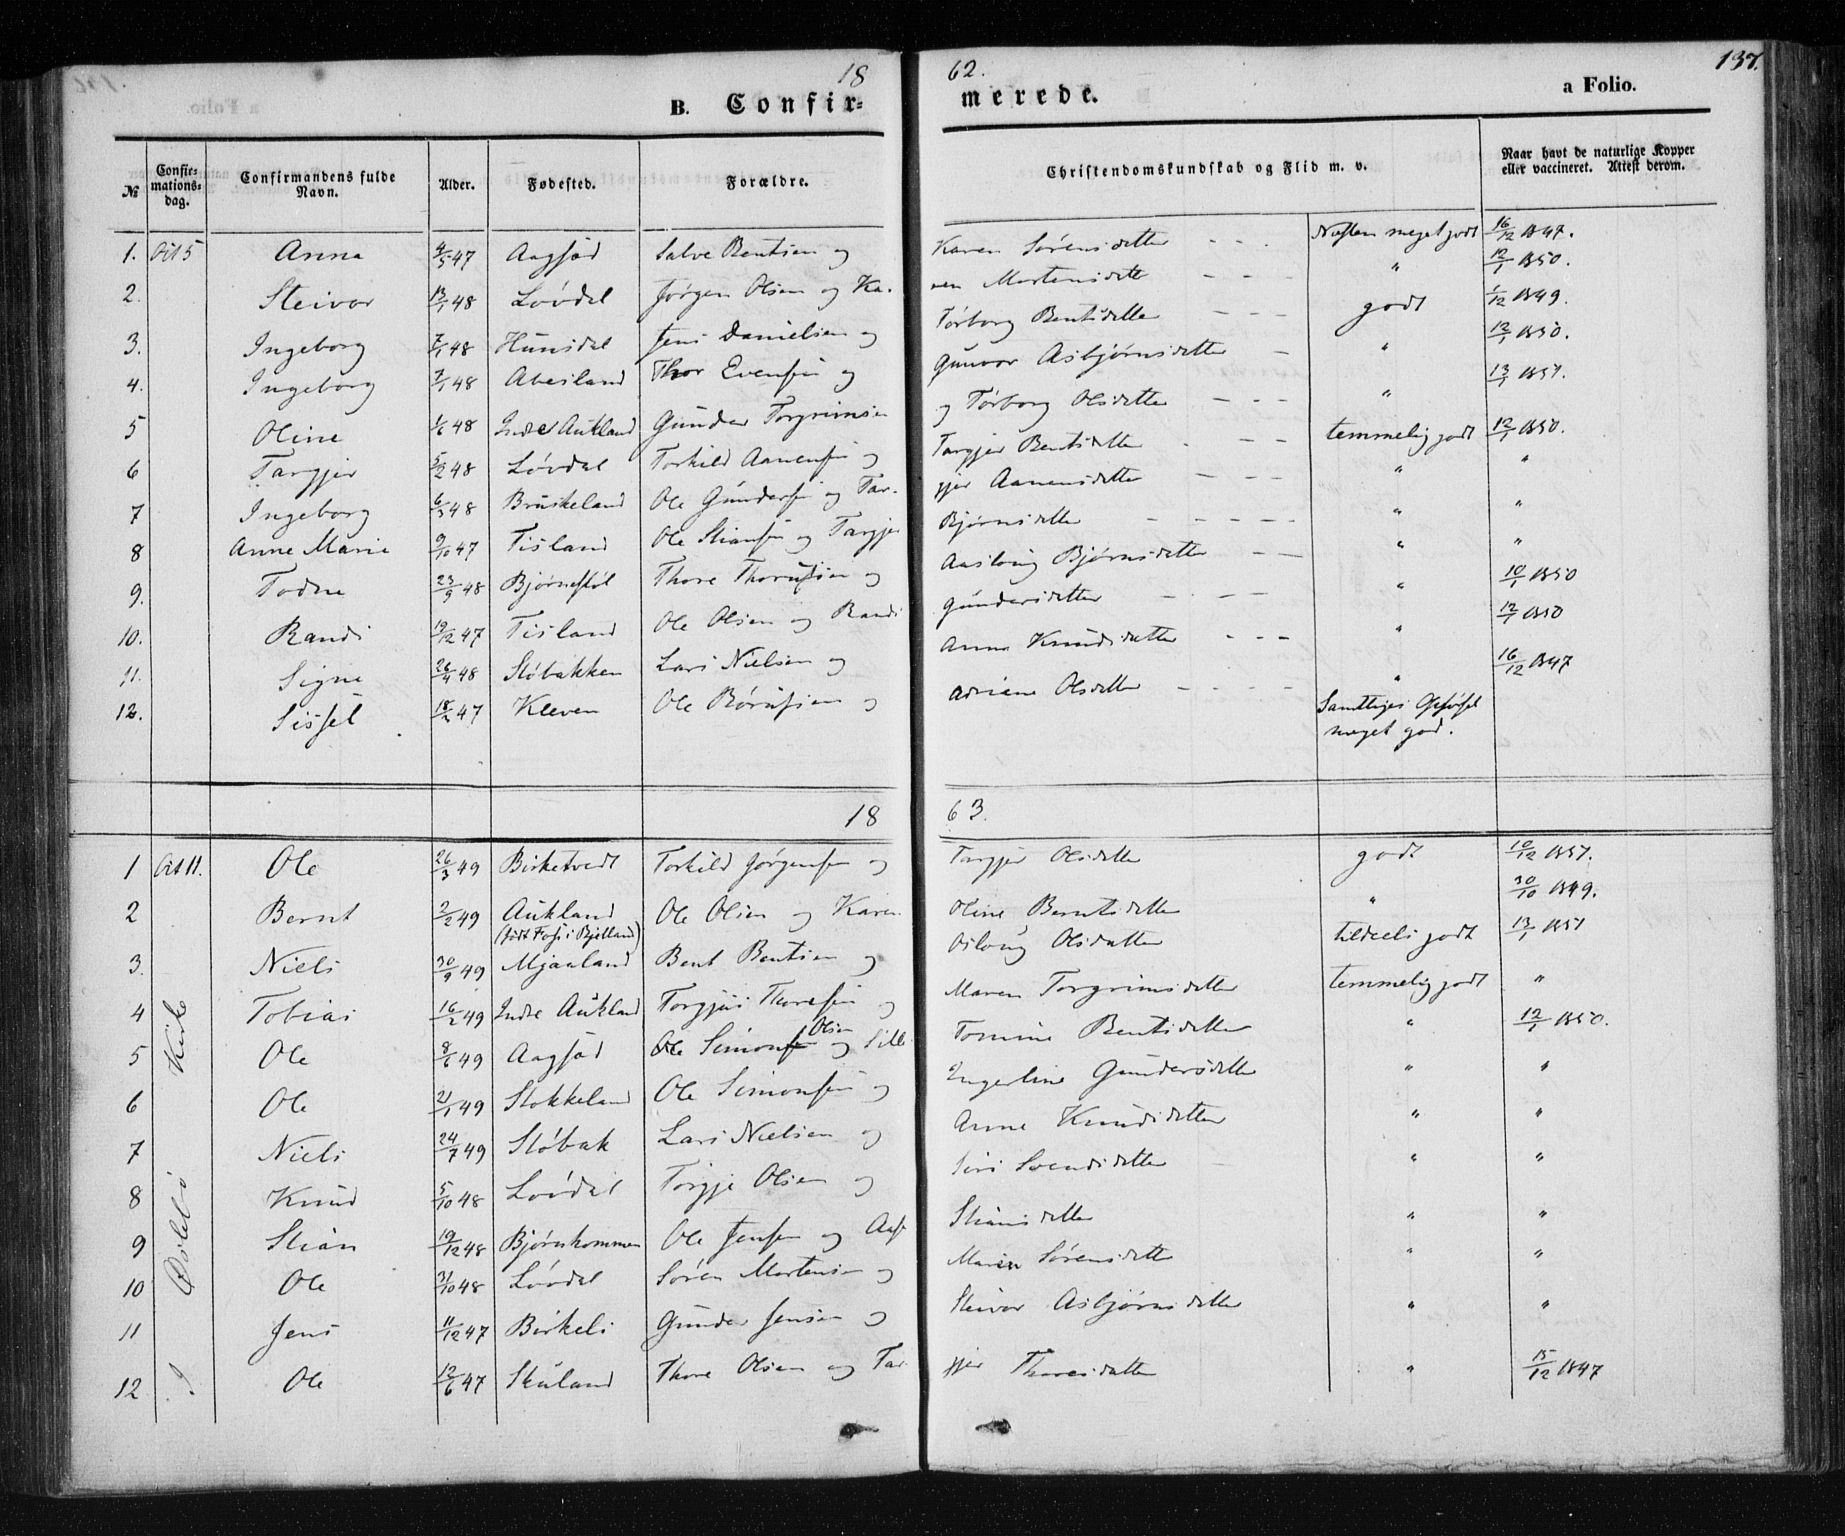 1862. 137.
B. Confirmerede. a Folio.
№ Confirmationsdag. Confirmandens fulde Navn. Alder. Fødested. Forældre. Christendomskundskab og Flid m. v. Naar havt de naturlige Kopper eller vaccineret. Attest derom.
1. Oct 5 Anna 4/5 47 Aagsød Salve Bentsen og Karen Sørensdatter - - - Næsten meget godt 16/12 1847.
2. Steivor 13/1 48 Løvdal Jørgen Olsen og Karen Mortensdatt - - - " 12/1 1850.
3. Ingeborg 7/1 48 Hunsdal Jens Danielsen og Tørborg Bentsdatter - - - godt 1/12 1849.
4. Ingeborg 7/1 48 Abesland Thor Evensen og Gunvor Asbjørnsdatter - " 12/1 1850.
5 Oline 1/6 48 Indre Aukland Gunder Torgrimsen og Tørborg Olsdatter - - - " 13/1 1851.
6 Targjer 5/2 48 Løvdal Torkild Aanensen og Targjer Bentsdatter - - - temmelig godt 12/1 1850.
7 Ingeborg 6/3 48 Bruskeland Ole Gundersen og Targjer Aanensdatter - - - " "
8 Anne Marie 9/10 47 Tisland Ole Stiansen og Targjer Bjørnsdatter - - - - " "
9. Todne 23/9 48 Bjørnestøl Thore Thorsen og Aaslaug Bjørnsdatter - - " "
10. Randi 19/12 47 Tisland Ole Olsen og Randi Gundersdatter - - - " 10/1 1850
11. Signe 26/4 48 Støbakken Lars Nielsen og Anne Knudsdatter - - - " 12/1 1850
12. Sissel 18/2 47 Kleven Ole Børufsen og Adriane Olsdatter - - - - " 16/12 1847
Samtliges Opførsel
meget god.
1863.
1 Oct 11. Ole 26/3 49 Birketvedt Torkild Jørgensen og Targjer Olsdatter godt 10/12 1851.
2 Bernt 2/2 49 Aukland Ole Olsen og Karen Oline Berntsdatter " 30/10 1849.
(født Foss i Bjelland)
3. Niels 30/9 49 Mjaaland Bent Bentsen og Osloug Olsdatter tildeels godt 13/1 1851
4 Tobias 16/2 49 Indre Aukland Torgjus Thoresen og Maren Torgrimsdatter temmelig godt "
5 Ole 8/6 49 Aagsød Ole Simonsen Olsen og Sille Tomine Bentsdatter " 12/1 1850.
6 Ole 21/1 49 Stokkeland Ole Simonsen og Engerline Gundersdatter " "
7 Niels 24/7 49 Støbak Lars Nielsen og Anne Knudsdatter " "
8 Knud 5/10 48 Løvdal Torgje Olsen og Siri Svendsdatter " "
9 Stian 19/12 48 Bjørnkommen Ole Jensen og Aase Stiansdatter " "
10 Ole 31/10 48 Løvdal Søren Mortensen og Maren Sørensdatt " "
11 Jens 11/12 47 Birkeli Gunder Jensen og Steivor Asbjørnsdatter " "
12 Ole 12/6 47 Skuland Thore Olsen og Targjer Thoresdatter " 15/12 1847
I Øslebø Kirke